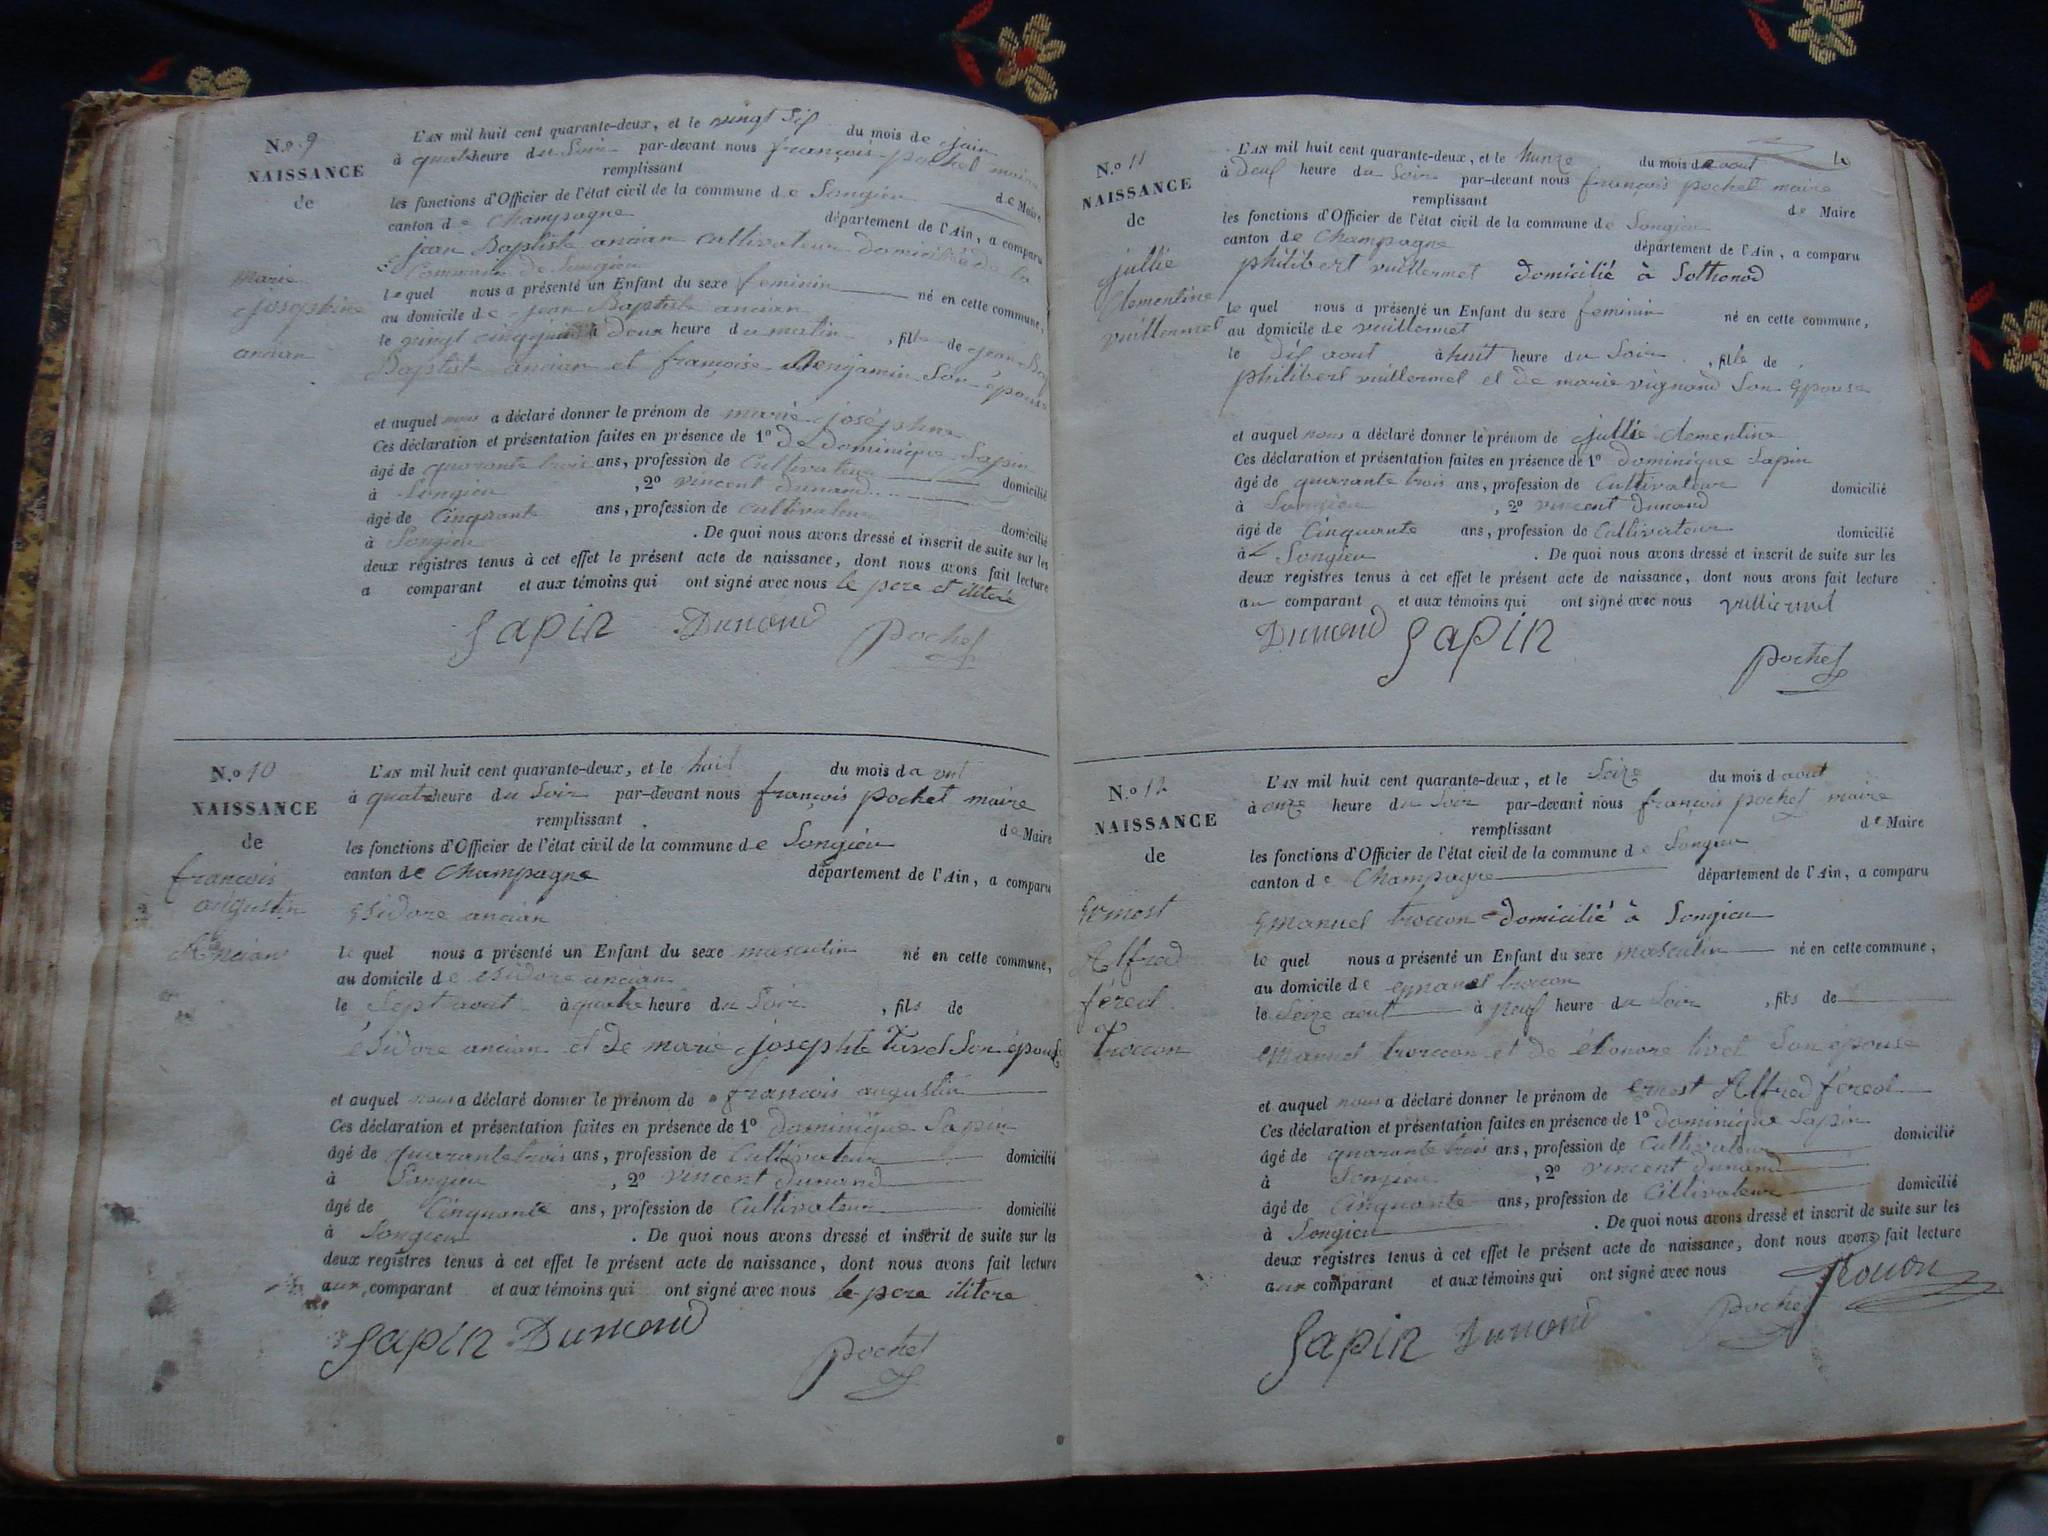 N.o 9
NAISSANCE
de
marie
josephine
ancian
L'AN mil huit cent quarante-deux, et le vingt six du mois de juin
à quatre heure du Soir par-devant nous françois pochet maire
remplissant
les fonctions d'Officier de l'état civil de la commune de Songieu de Maire
canton de Champagne département de l'Ain, a comparu
jean Baptiste ancian cultivateur domicilié de la
Commune de Songieu
le quel nous a présenté un Enfant du sexe feminin né en cette commune,
au domicile de jean Baptiste ancian
le vingt cinq juin à deux heure du matin, fille de jean Bap
Baptiste ancian et françoise Benjamin Son épouse
et auquel nous a déclaré donner le prénom de marie joséphine
Ces déclaration et présentation faites en présence de 1º De Dominique Sapin
âgé de quarante trois ans, profession de Cultivateur domicilié
à Songieu, 2º vincent dunand
âgé de Cinquante ans, profession de cultivateur domicilié
à Songieu. De quoi nous avons dressé et inscrit de suite sur les
deux registres tenus à cet effet le présent acte de naissance, dont nous avons fait lecture
a comparant et aux témoins qui ont signé avec nous le pere et ilitéré
Sapin Dunand Pochet
N.o 10
NAISSANCE
de
francois
augustin
Ancian
L'AN mil huit cent quarante-deux, et le huit du mois d aout
à quatre heure du Soir par-devant nous françois pochet maire
remplissant de Maire
les fonctions d'Officier de l'état civil de la commune de Songieu
canton de Champagne département de l'Ain, a comparu
ésidore ancian
le quel nous a présenté un Enfant du sexe masculin né en cette commune,
au domicile de ésidore ancian
le Sept aout à quatre heure du Soir, fils de
ésidore ancian et de marie josephte Tivel Son épouse
et auquel nous a déclaré donner le prénom de francois augustin
Ces déclaration et présentation faites en présence de 1º dominique Sapin
âgé de quarante trois ans, profession de Cultivateur domicilié
à Songieu, 2º vincent dunand
âgé de Cinquante ans, profession de Cultivateur domicilié
à Songieu. De quoi nous avons dressé et inscrit de suite sur les
deux registres tenus à cet effet le présent acte de naissance, dont nous avons fait lecture
aux comparant et aux témoins qui ont signé avec nous le pere ilitere
Sapin Dunand
pochet
N.o 11
NAISSANCE
de
jullie
Clementine
vuillermet
L'AN mil huit cent quarante-deux, et le hunze du mois de aout
à deux heure du Soir par-devant nous françois pochet maire
remplissant de Maire
les fonctions d'Officier de l'état civil de la commune de Songieu
canton de Champagne département de l'Ain, a comparu
philibert vuillermet Domicilié à Sothonod
le quel nous a présenté un Enfant du sexe feminin né en cette commune,
au domicile de vuillermet
le dix aout à huit heure du Soir, fille de
philibert vuillermet et de marie vignand Son épouse
et auquel nous a déclaré donner le prénom de jullie clementine
Ces déclaration et présentation faites en présence de 1º Dominique Sapin
âgé de quarante trois ans, profession de Cultivateur domicilié
à Songieu, 2º vincent Dunand
âgé de Cinquante ans, profession de Cultivateur domicilié
à Songieu. De quoi nous avons dressé et inscrit de suite sur les
deux registres tenus à cet effet le présent acte de naissance, dont nous avons fait lecture
au comparant et aux témoins qui ont signé avec nous vulliermet
Dunand Sapin
pochet
N.o 12
NAISSANCE
de
Ernest
Alfred
féreol
Trocon
L'AN mil huit cent quarante-deux, et le Seize du mois d aout
à onze heure du Soir par-devant nous françois pochet maire
remplissant de Maire
les fonctions d'Officier de l'état civil de la commune de Songieu
canton de Champagne département de l'Ain, a comparu
émanuel trocon domicilié à Songieu
le quel nous a présenté un Enfant du sexe masculin né en cette commune,
au domicile de émanuel trocon
le Seize aout à neuf heure du Soir, fils de
émanuel trocon et de éléonore tivel Son épouse
et auquel nous a déclaré donner le prénom de ernest Alfred féreol
Ces déclaration et présentation faites en présence de 1º dominique Sapin
âgé de quarante trois ans, profession de Cultivateur domicilié
à Songieu, 2º vincent dunand
âgé de Cinquante ans, profession de Cultivateur domicilié
à Songieu. De quoi nous avons dressé et inscrit de suite sur les
deux registres tenus à cet effet le présent acte de naissance, dont nous avons fait lecture
aux comparant et aux témoins qui ont signé avec nous Trocon
Sapin Dunand pochet